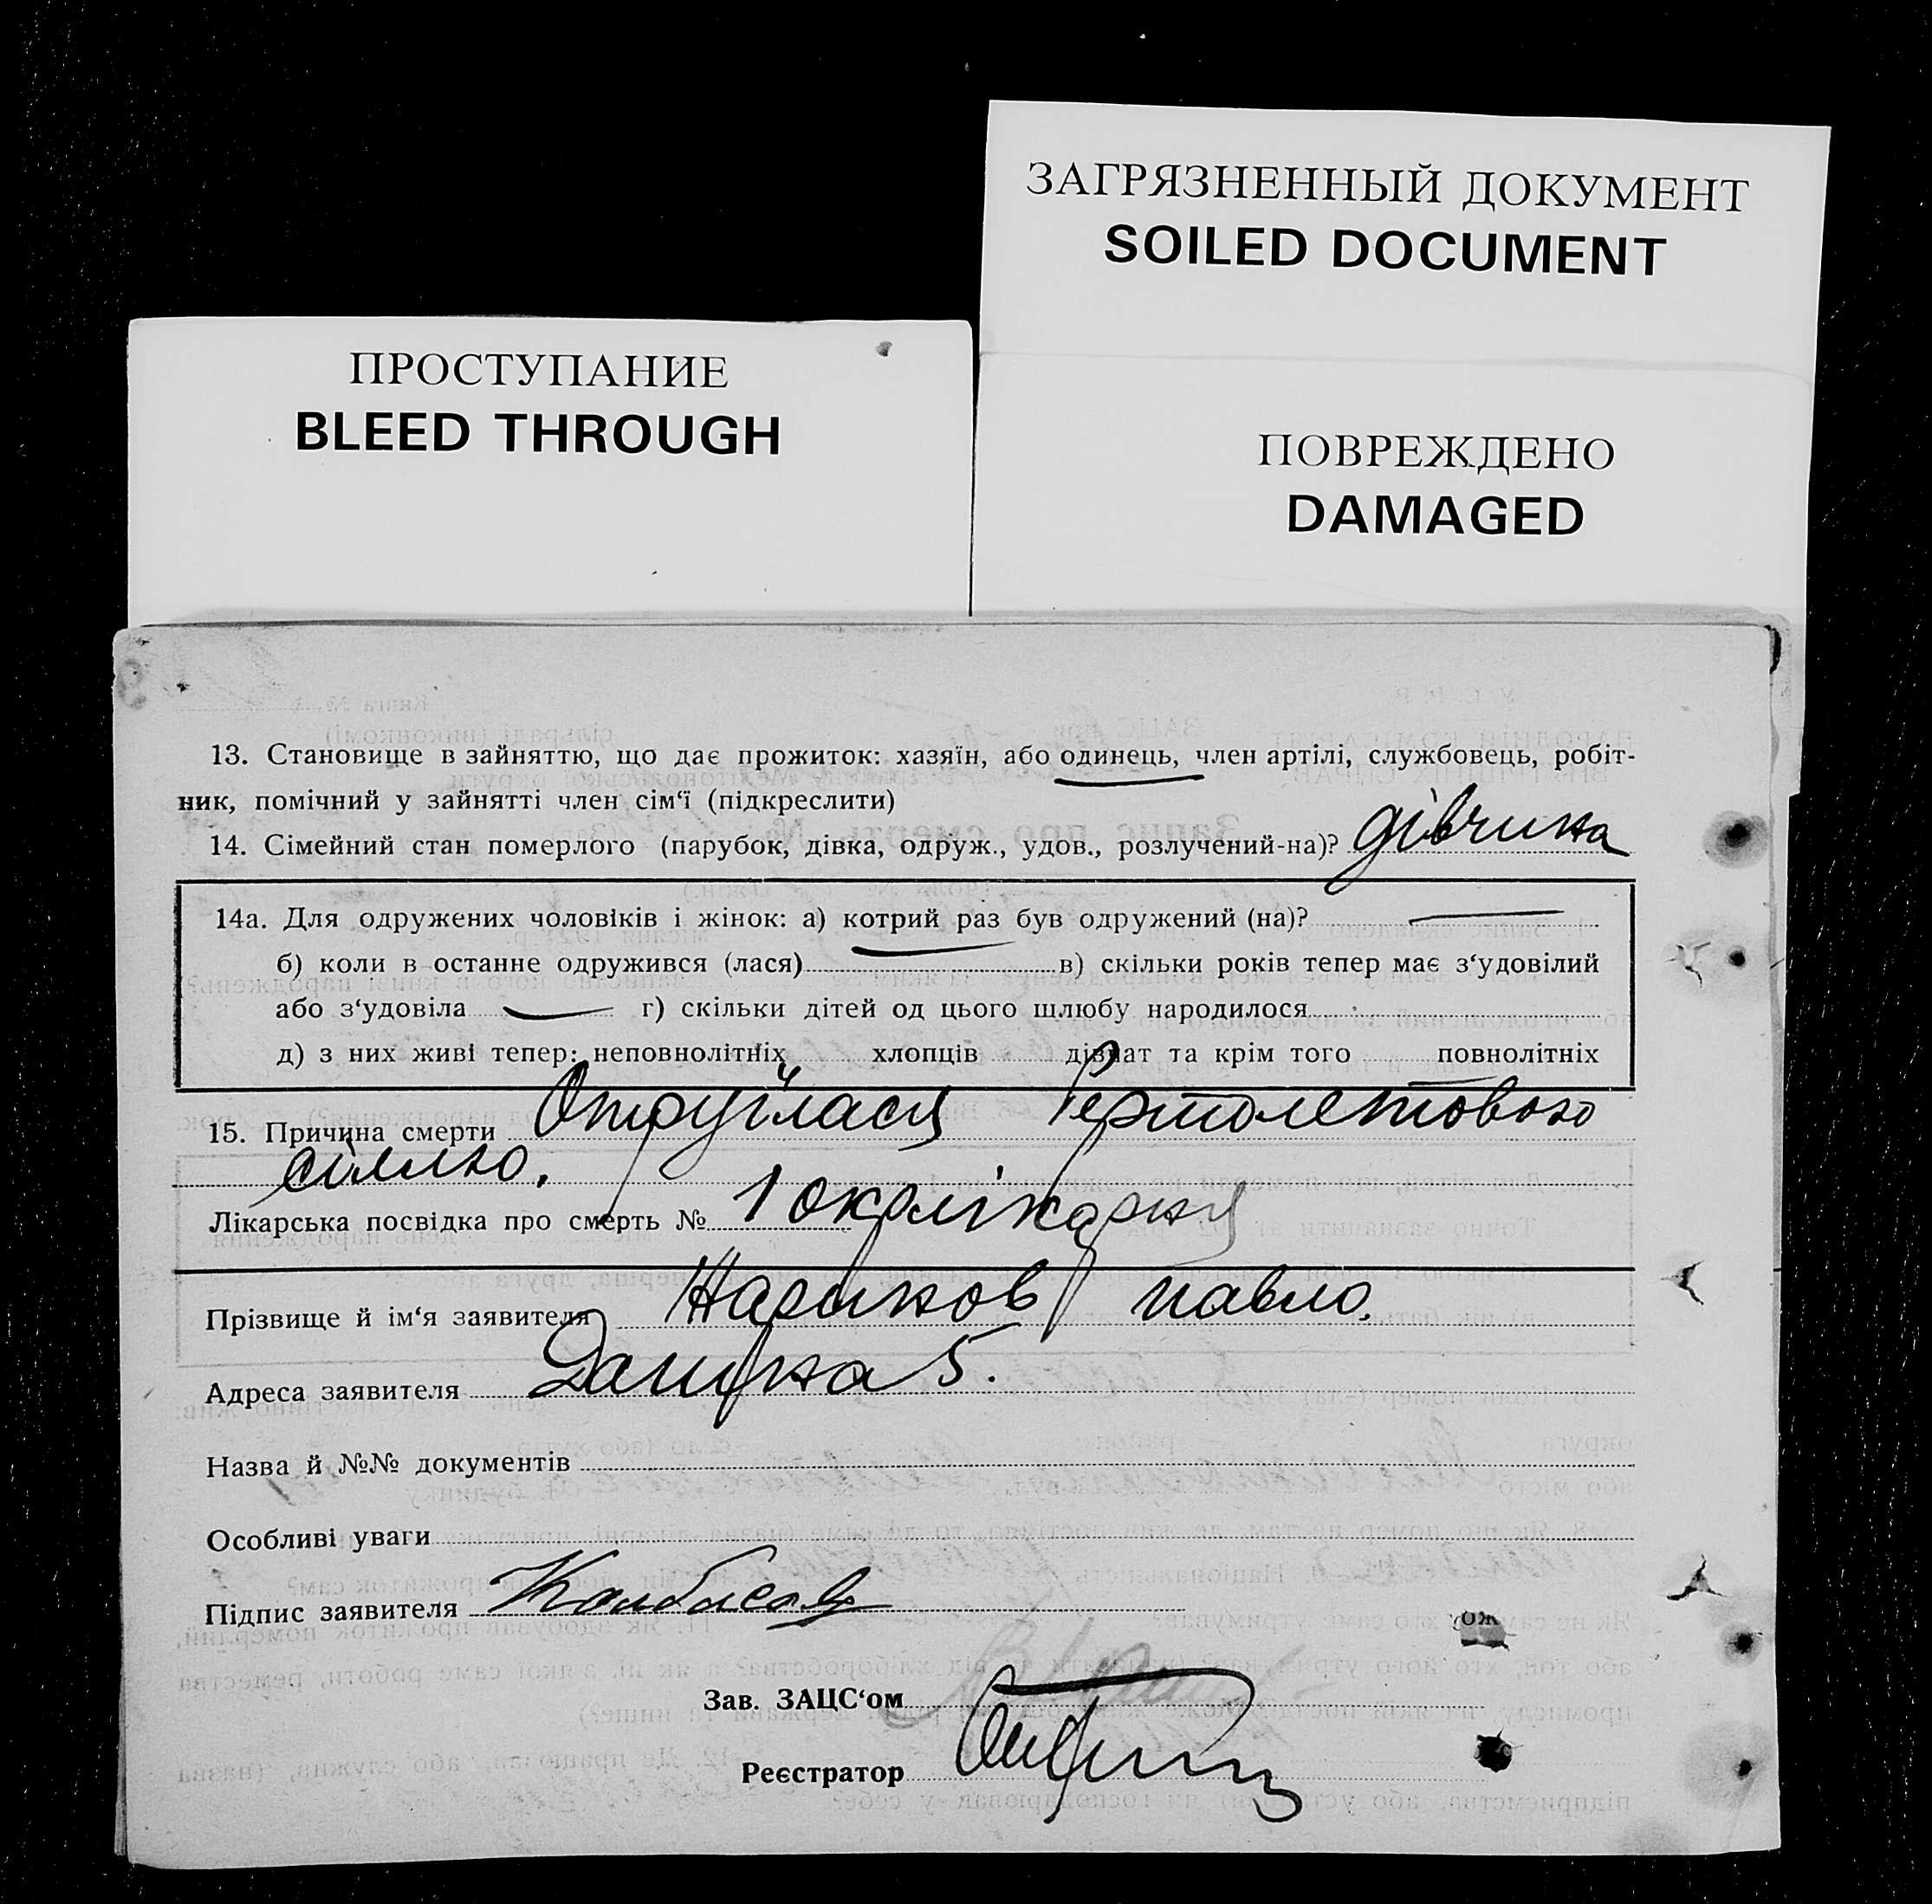 ЗАГРЯЗНЕННЫЙ ДОКУМЕНТ
SOILED DOCUMENT
ПРОСТУПАНИЕ
BLEED THROUGH
ПОВРЕЖДЕНО
DAMAGED
13. Становище в зайняттю, що дає прожиток: хазяїн, або одинець, член артілі, службовець, робіт-
ник, помічний у зайнятті член сім‘ї (підкреслити)
14. Сімейний стан померлого (парубок, дівка, одруж., удов., розлучений-на)? дівчина
14а. Для одружених чоловіків і жінок: а) котрий раз був одружений (на)?
б) коли в останне одружився (лася) в) скільки років тепер має з‘удовілий
або з‘удовіла г) скільки дітей од цього шлюбу народилося
д) з них живі тепер: неповнолітніх хлопців дівчат та крім того повнолітніх
15. Причина смерти Отруїлася Бертолетовою
сіллю.
Лікарська посвідка про смерть № 1 окрлікарня
Прізвище й ім‘я заявителя Павло.
Адреса заявителя 5.
Назва й №№ документів
Особливі уваги
Підпис заявителя
Зав. ЗАЦС‘ом
Реєстратор